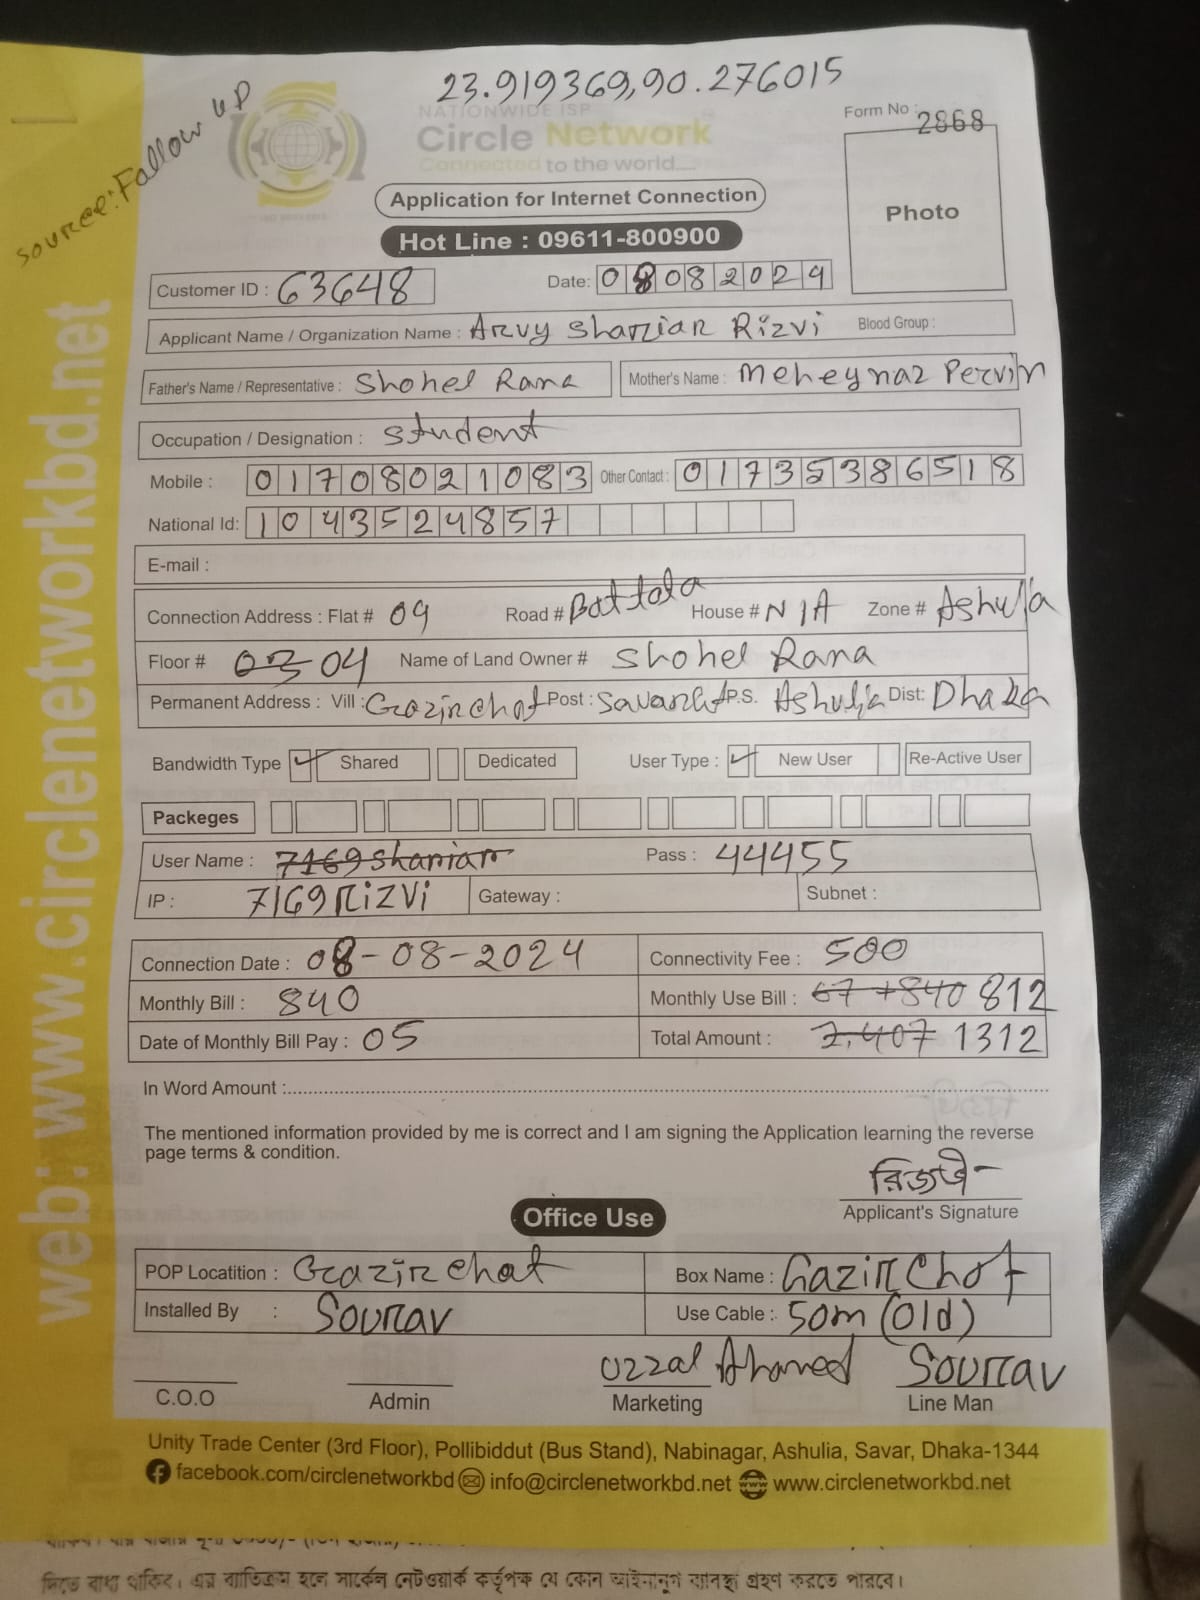 23.919369,90.276015
Source: Follow UP
NATIONWIDE ISP
Circle Network
Connected to the world....
Form No : 2868
Photo
Application for Internet Connection
Hot Line : 09611-800900
Customer ID : 63648 Date: 08082024
Applicant Name / Organization Name : Arvy Shariar Rizvi Blood Group :
Father's Name / Representative : Shohel Rana Mother's Name : Meheynaz Pervin
Occupation / Designation : Student
Mobile : 01708021083 Other Contact : 01735386518
National Id: 1043524857
E-mail :
Connection Address : Flat # 09 Road # Battola House # N/A Zone # Ashulia
Floor # 03 04 Name of Land Owner # Shohel Rana
Permanent Address : Vill : Gazirchot Post : Savar P.S. Ashulia Dist: Dhaka
Bandwidth Type ✓ Shared Dedicated User Type : ✓ New User Re-Active User
Packeges
User Name : 7169shariar Pass : 44455
IP : 7169Rizvi Gateway : Subnet :
Connection Date : 08-08-2024 Connectivity Fee : 500
Monthly Bill : 840 Monthly Use Bill : 67+840 812
Date of Monthly Bill Pay : 05 Total Amount : 1,407 1312
In Word Amount :
The mentioned information provided by me is correct and I am signing the Application learning the reverse
page terms & condition.
রিজভী
Applicant's Signature
Office Use
POP Locatition : Gazirchat Box Name : Gazirchot
Installed By : Sourav Use Cable : 50m (Old)
Uzzal Ahamed Sourav
C.O.O Admin Marketing Line Man
Unity Trade Center (3rd Floor), Pollibiddut (Bus Stand), Nabinagar, Ashulia, Savar, Dhaka-1344
facebook.com/circlenetworkbd info@circlenetworkbd.net www.circlenetworkbd.net
web: www.circlenetworkbd.net
দিতে বাধ্য থাকিব। এর ব্যতিক্রম হলে সার্কেল নেটওয়ার্ক কর্তৃপক্ষ যে কোন আইনানুগ ব্যবস্থা গ্রহণ করতে পারবে।